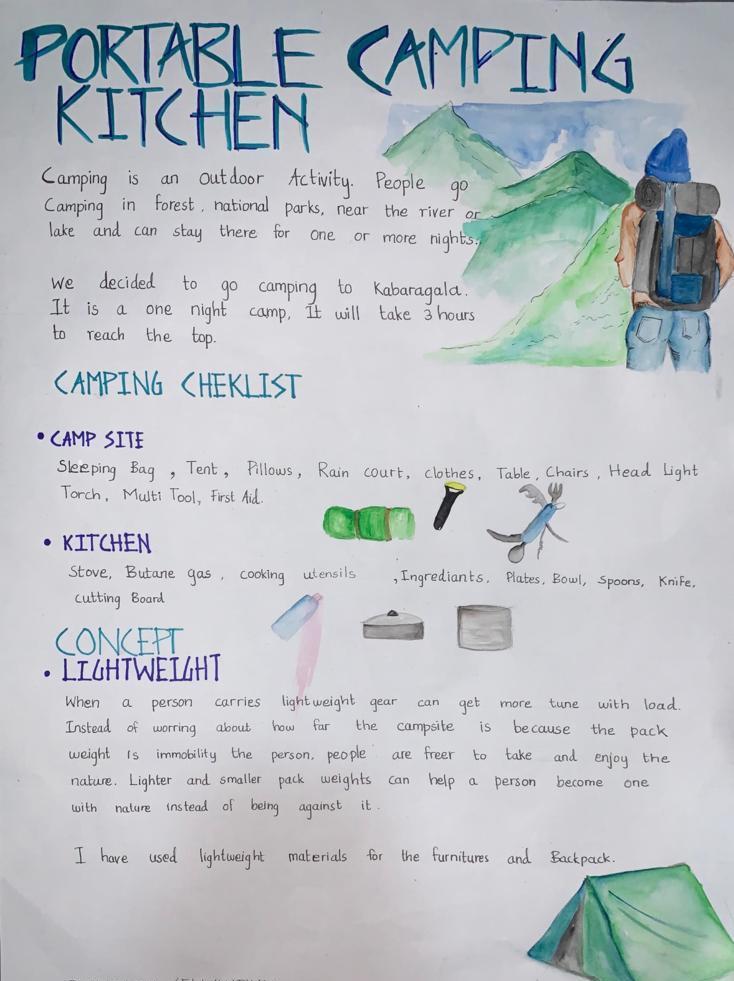 PORTABLE CAMPING
KITCHEN
Camping is an outdoor Activity. People go
Camping in forest, national parks, near the river or
lake and can stay there for one or more nights.
We decided to go camping to Kabaragala.
It is a one night camp, It will take 3 hours
to reach the top.
CAMPING CHEKLIST
• CAMP SITE
Sleeping Bag , Tent, Pillows, Rain court, clothes, Table, Chairs, Head Light
Torch, Multi Tool, First Aid.
• KITCHEN
Stove, Butane gas, cooking utensils , Ingrediants, Plates, Bowl, Spoons, Knife,
Cutting Board
CONCEPT
• LIGHTWEIGHT
When a person carries lightweight gear can get more tune with load.
Instead of worring about how far the campsite is because the pack
weight is immobility the person, people are freer to take and enjoy the
nature. Lighter and smaller pack weights can help a person become one
with nature instead of being against it.
I have used lightweight materials for the furnitures and Backpack.